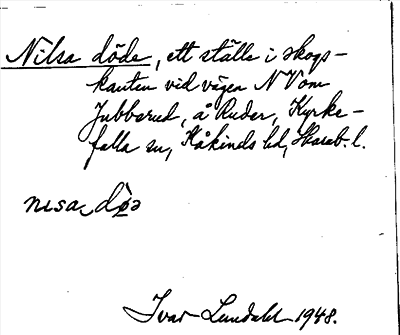 Nilsa döde, ett ställe i skogs-
kanten vid vägen NV om
Jubbarud, å Ruder, Kyrke-
falla sn, Kåkinds hd, Skarab. l.
nɩsa, dø̀ə
Ivar Lundahl 1948.